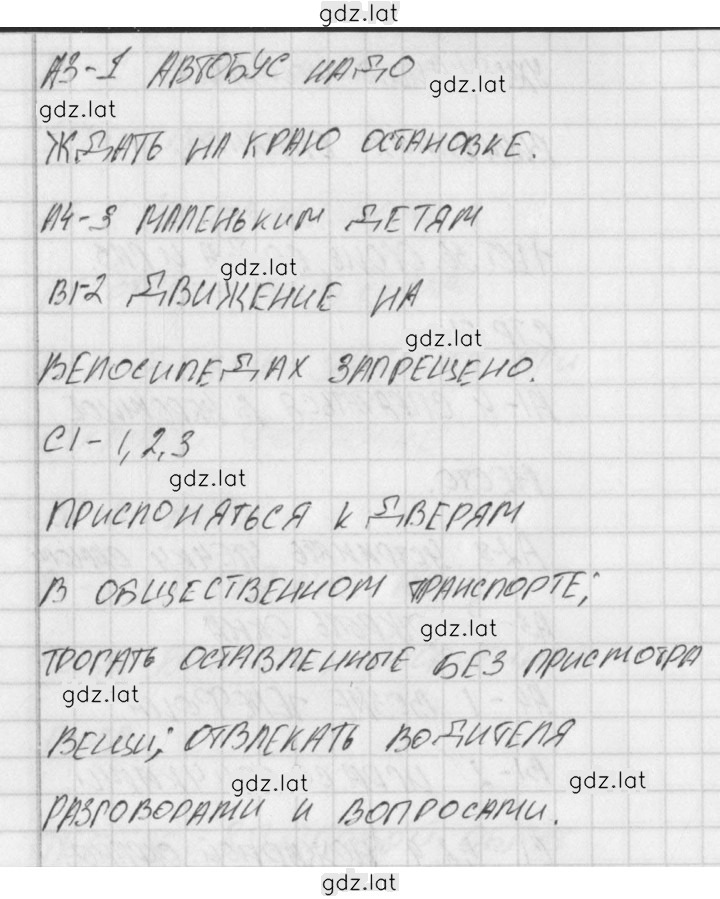 gdz.lat
А3-1 АВТОБУС НАДО
gdz.lat
gdz.lat
ЖДАТЬ НА КРАЮ ОСТАНОВКЕ.
А4-3 МАЛЕНЬКИМ ДЕТЯМ
gdz.lat
В1-2 ДВИЖЕНИЕ НА
gdz.lat
ВЕЛОСИПЕДАХ ЗАПРЕЩЕНО.
С1- 1, 2, 3
gdz.lat
ПРИСЛОНЯТЬСЯ К ДВЕРЯМ
В ОБЩЕСТВЕННОМ ТРАНСПОРТЕ;
gdz.lat
ТРОГАТЬ ОСТАВЛЕННЫЕ БЕЗ ПРИСМОТРА
gdz.lat
ВЕЩИ; ОТВЛЕКАТЬ ВОДИТЕЛЯ
gdz.lat
gdz.lat
РАЗГОВОРАМИ И ВОПРОСАМИ.
gdz.lat